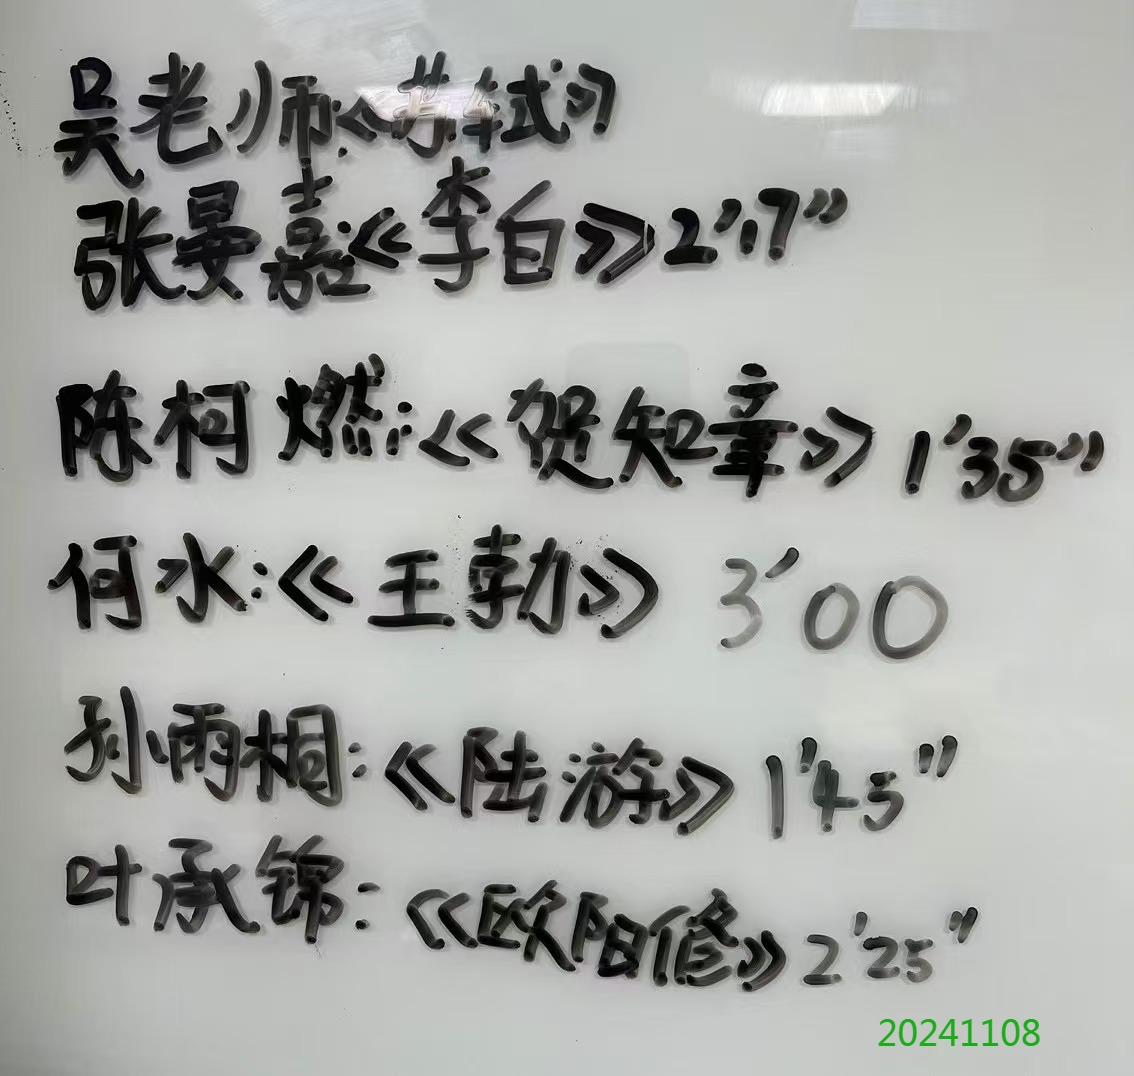 吴老师:《苏轼》
张晏嘉:《李白》2'17"
陈柯燃:《贺知章》1'35"
何水:《王勃》3'00
孙雨桐:《陆游》1'45"
叶承锦:《欧阳修》2'25"
20241108